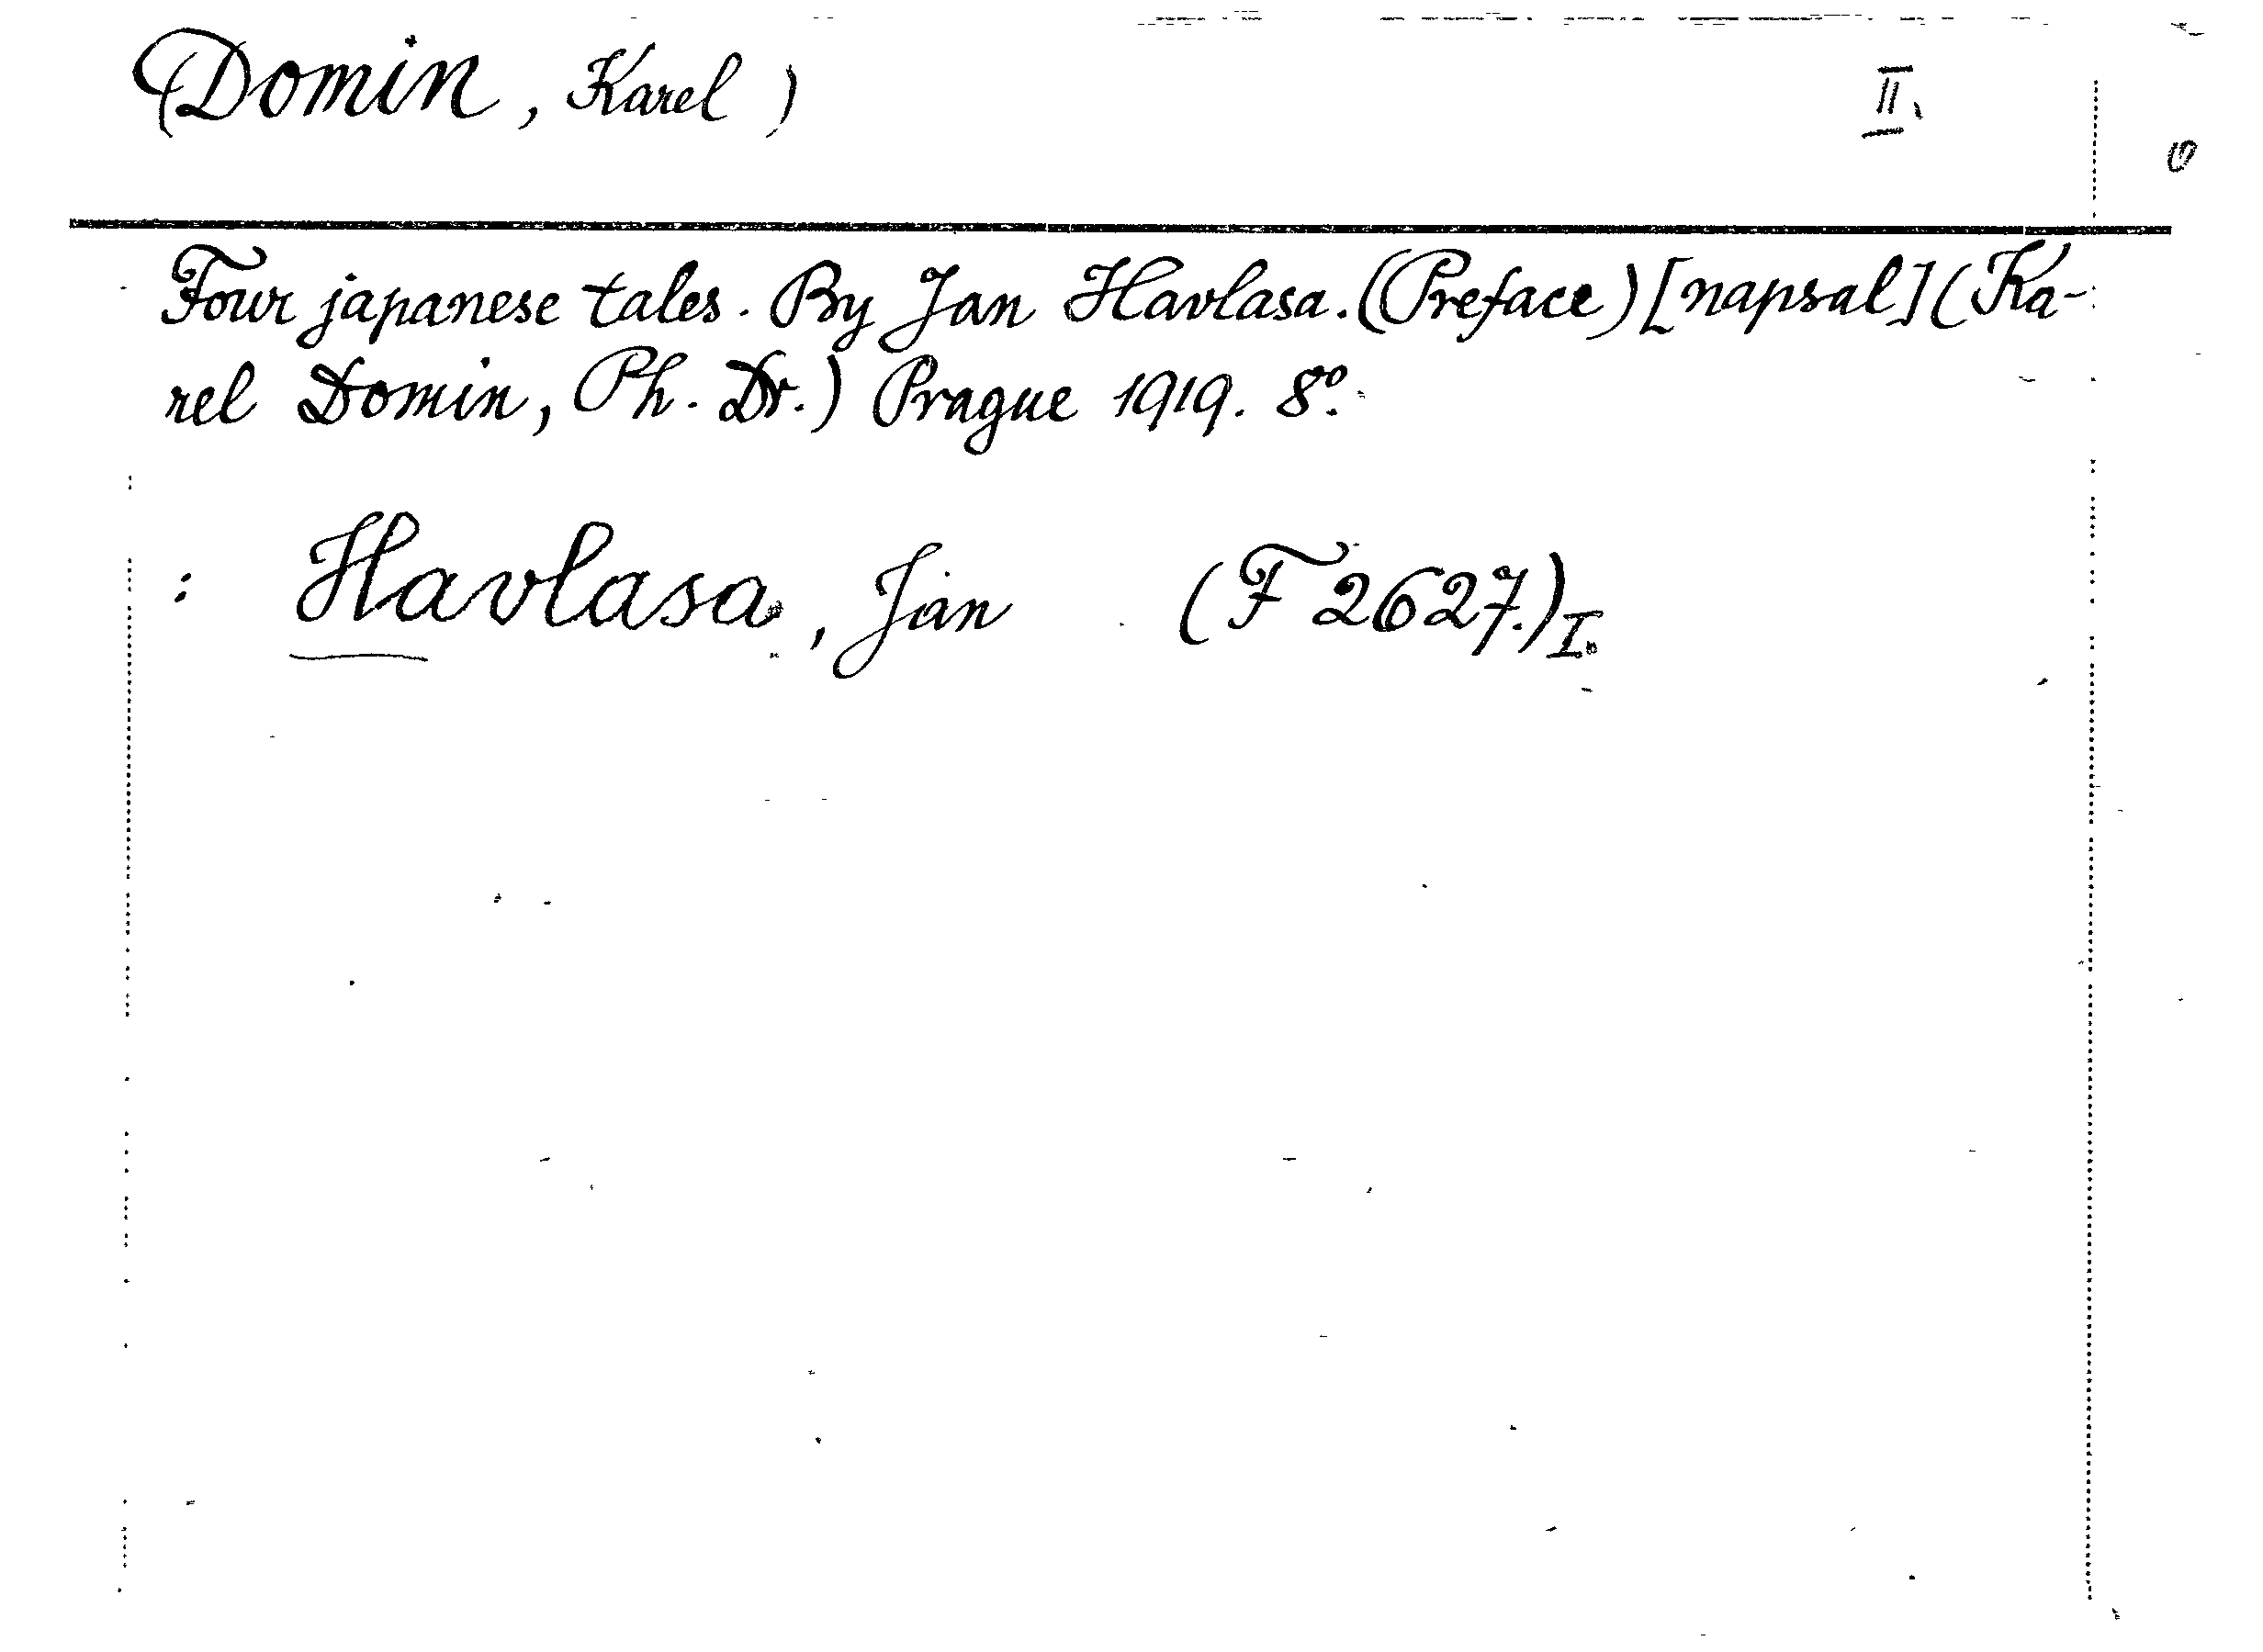 (Domin, Karel) II.
Four japanese tales. By Jan Havlasa. (Preface) [napsal] (Ka-
rel Domin, Ph. Dr.) Prague 1919. 8°.
: Havlasa, Jan (F 2627.) I.